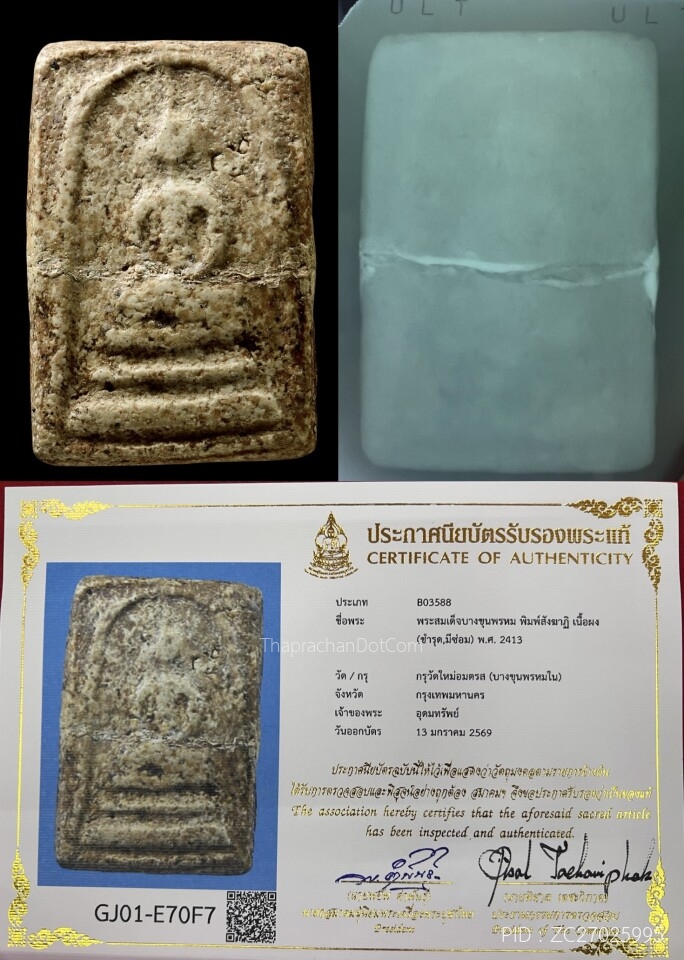 ULT
UL
ประกาศนียบัตรรับรองพระแท้
CERTIFICATE OF AUTHENTICITY
ประเภท B03588
ชื่อพระ พระสมเด็จบางขุนพรหม พิมพ์สังฆาฏิ เนื้อผง
(ชำรุด,มีซ่อม) พ.ศ. 2413
ThaprachanDotCom
วัด / กรุ กรุวัดใหม่อมตรส (บางขุนพรหมใน)
จังหวัด กรุงเทพมหานคร
เจ้าของพระ อุดมทรัพย์
วันออกบัตร 13 มกราคม 2569
ประกาศนียบัตรฉบับนี้ให้ไว้เพื่อแสดงว่าวัตถุมงคลตามรายการข้างต้น
ได้รับการตรวจสอบและพิสูจน์อย่างถูกต้อง สมาคมฯ จึงขอประกาศรับรองว่าเป็นของแท้
The association hereby certifies that the aforesaid sacred article
has been inspected and authenticated.
GJ01-E70F7
President
PID : ZC27025995